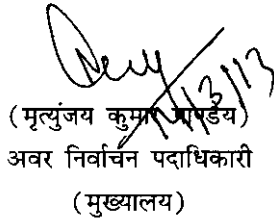 14/3/13
(मृत्युंजय कुमार पाण्डेय)
अवर निर्वाचन पदाधिकारी
(मुख्यालय)